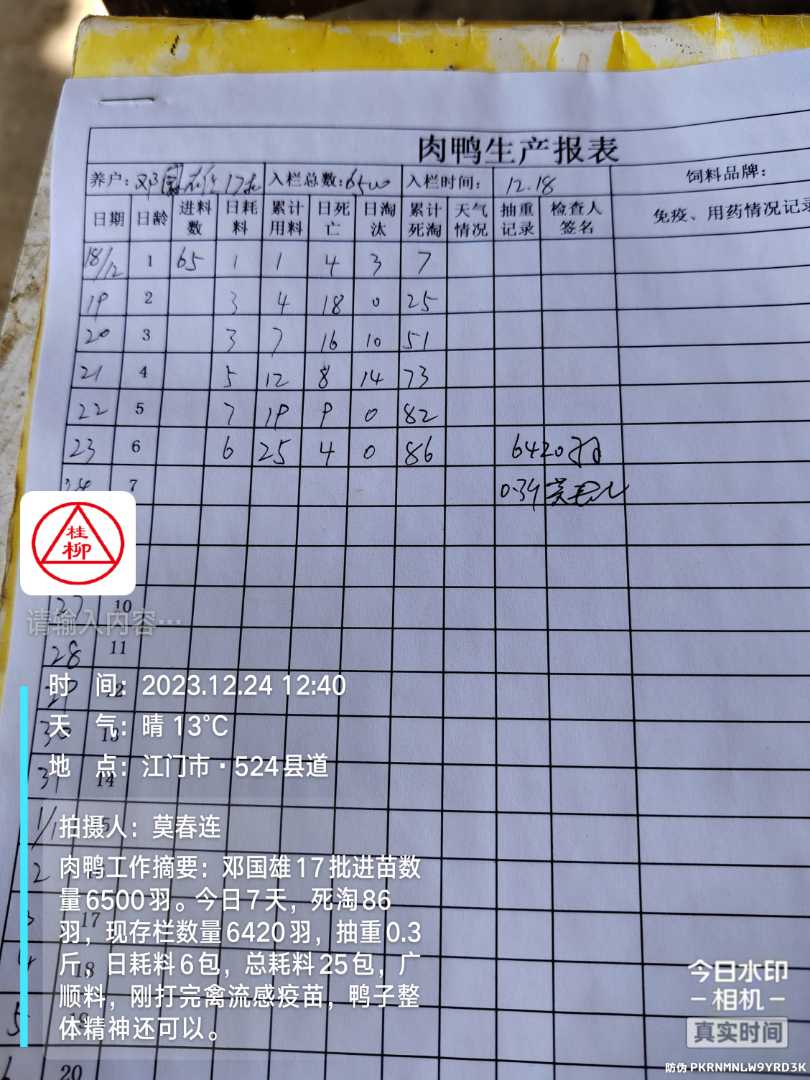 肉鸭生产报表
养户: 邓国雄17批 入栏总数: 6500 入栏时间: 12.18 饲料品牌:
日期 日龄 进料数 日耗料 累计用料 日死亡 日淘汰 累计死淘 天气情况 抽重记录 检查人签名 免疫、用药情况记录
18/12 1 65 1 1 4 3 7
19 2 3 4 18 0 25
20 3 3 7 16 10 51
21 4 5 12 8 14 73
22 5 7 19 9 0 82
23 6 6 25 4 0 86 6420羽
24 7
桂柳
27 10
请输入内容…
28 11
时 间: 2023.12.24 12:40
天 气: 晴 13℃
地 点: 江门市·524县道
31 14
1/1
拍摄人: 莫春连
2
肉鸭工作摘要: 邓国雄17批进苗数
量6500羽。今日7天, 死淘86
3 17
羽, 现存栏数量6420羽, 抽重0.3
4 18
斤, 日耗料6包, 总耗料25包, 广
顺料, 刚打完禽流感疫苗, 鸭子整
5
体精神还可以。
20
今日水印
相机
真实时间
防伪 PKRNMNLW9YRD3K